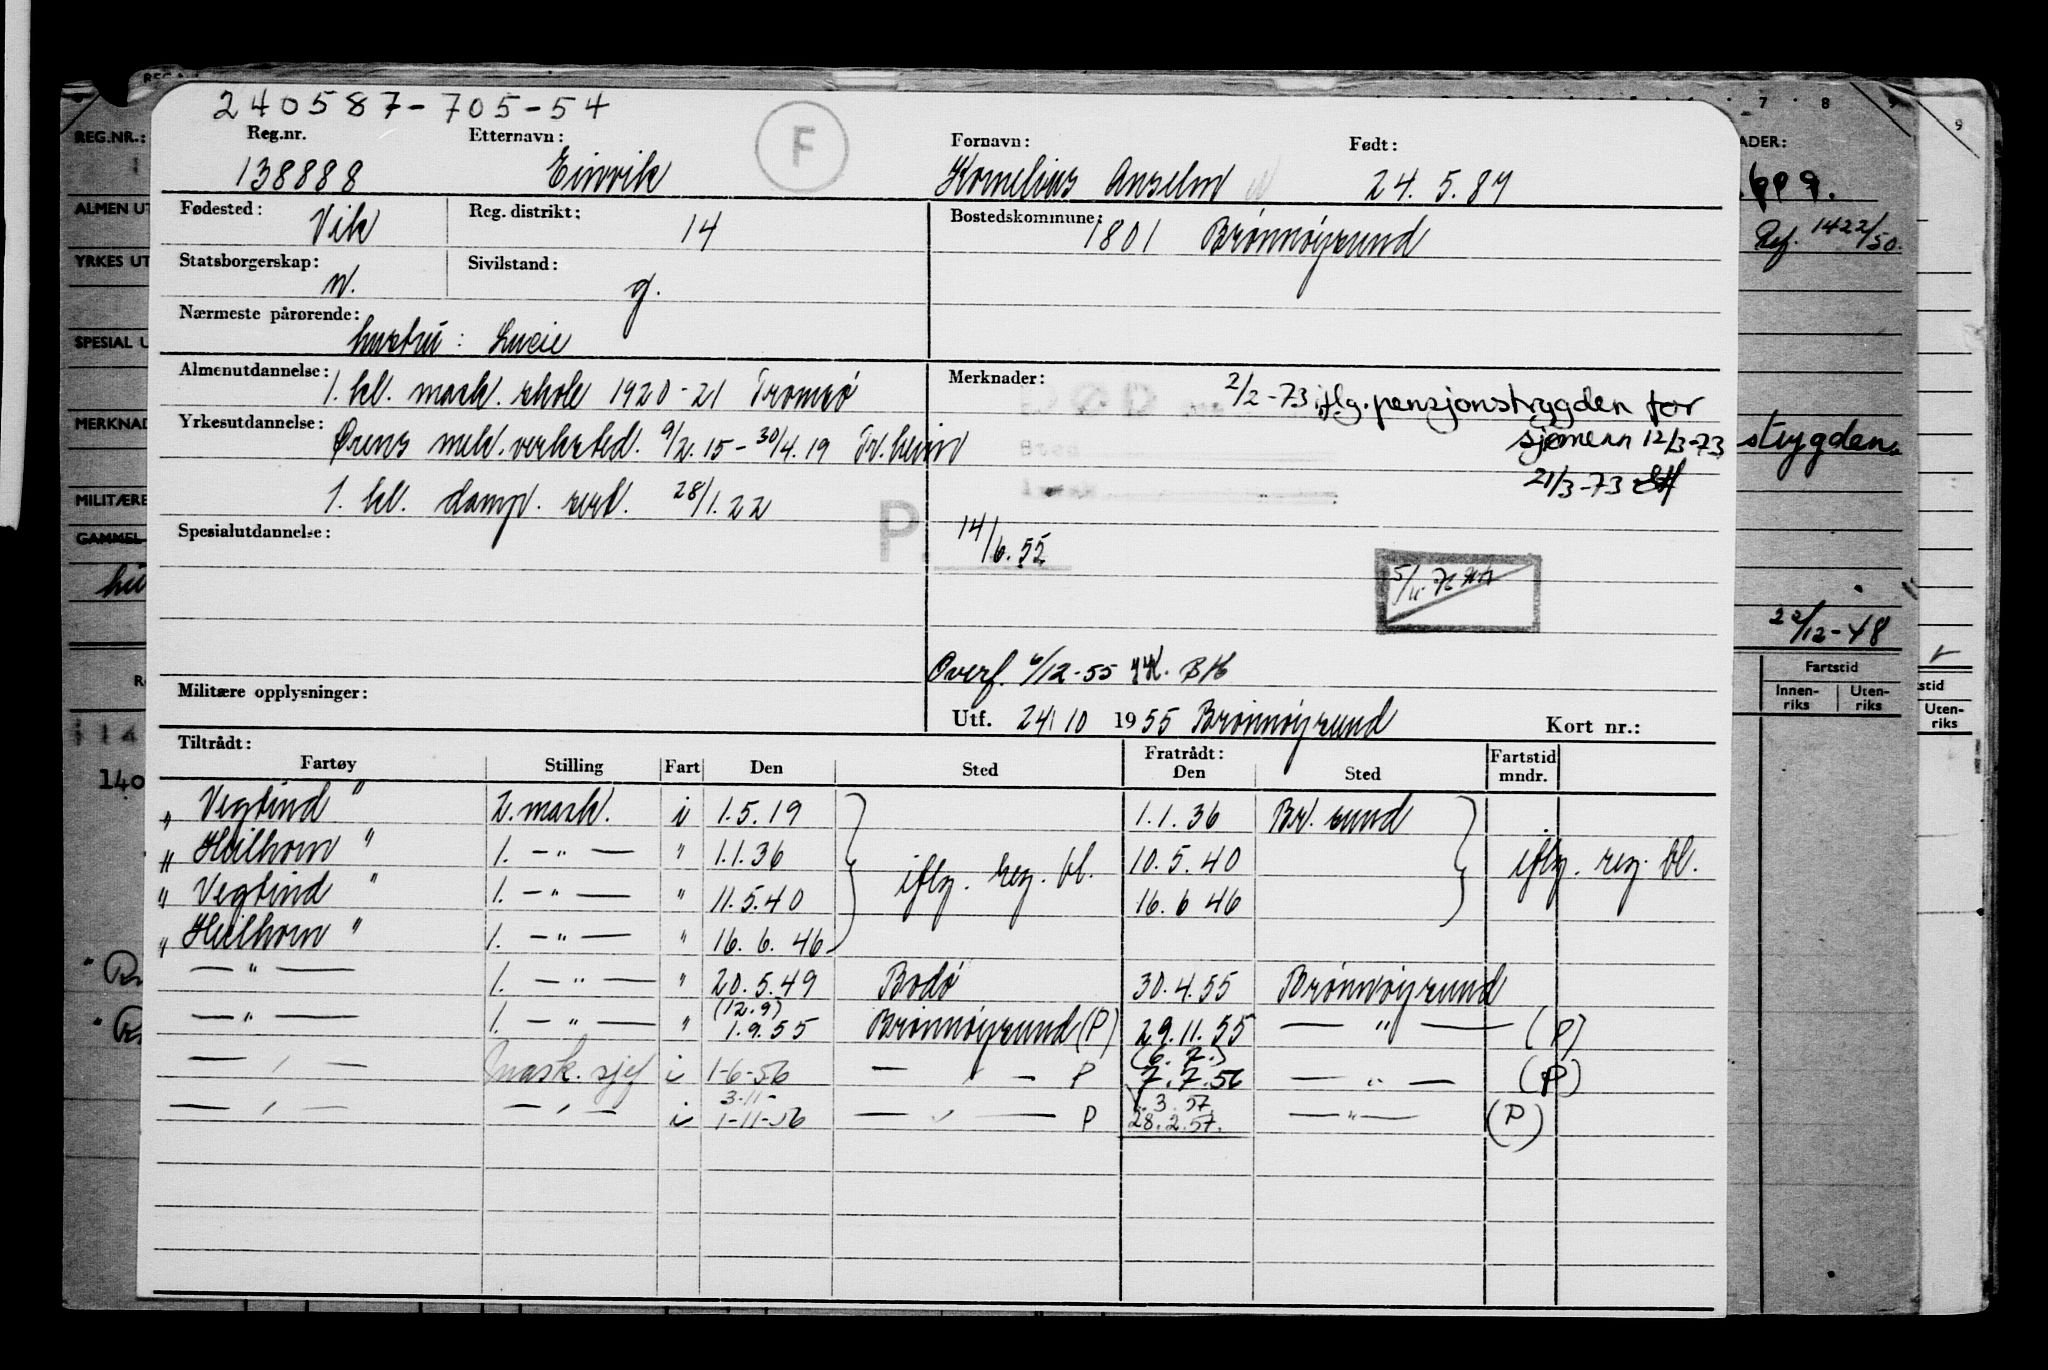 240587-705-54
F
Reg.nr. Etternavn: Fornavn: Født:
138888 Einvik Kornelius Anselm 24.5.87
Fødested: Vik Reg. distrikt: 14 Bostedskommune: 1801 Brønnøysund
Statsborgerskap: n. Sivilstand: g.
Nærmeste pårørende:
hustru: Lucie
Almenutdannelse: 1. kl. mask. skole 1920-21 Tromsø
Yrkesutdannelse: Ørens mek. verksted. 9/2.15 - 30/4.19 Tr.heim
1. kl. damp. sert. 28/1.22
Spesialutdannelse:
Militære opplysninger:
Merknader: DØD 2/2-73 iflg. pensjonstrygden for
sjømenn 12/3-73
Sted
21/3-73
P. 14/6.55
Overf. 6/12-55
Utf. 24/10 1955 Brønnøysund Kort nr.:
Tiltrådt: Fratrådt:
Fartøy Stilling Fart Den Sted Den Sted Fartstid mndr.
„ Vegtind " 2. mask. i 1.5.19 1.1.36 Br. sund
„ Heilhorn " 1. -"- " 1.1.36 iflg. reg. bl. 10.5.40 iflg. reg. bl.
„ Vegtind " 1. -"- " 11.5.40 16.6 46
„ Heilhorn " 1. -"- " 16.6.46
-"- 1. -"- " 20.5.49 Bodø 30.4.55 Brønnøysund
-"- 1. -"- " (12.9) 1.9.55 Brønnøysund (P) 29.11.55 -"- (P)
-"- Mask. sjef i 1-6-56 -"- P (6.7.) 7.7.56 -"- (P)
-"- -"- i 3.11- 1-11-56 -"- P 1.3.57 28.2.57. -"- (P)
REG.NR.:
ALMEN UT
YRKES UT
SPESIAL U
MERKNAD
MILITÆRE
GAMMEL
hu
140
7 8 9
ADER:
Ref. 1422/50.
stygden.
22/12-48
Fartstid
Innen-riks Uten-riks
9
stid
Uten-riks